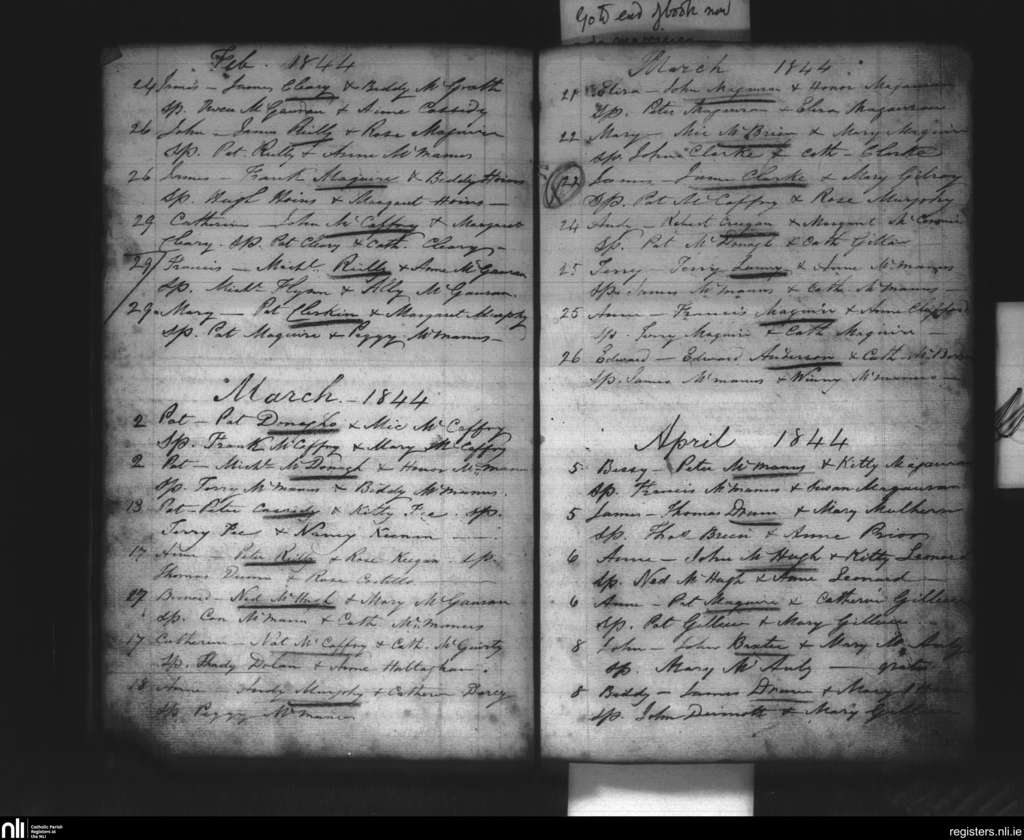 Go to end of book now
Feb. 1844
24 James Cleary & Biddy McGrath
Sp. Owen McGauran & Anne Cassidy
26 John - James Reilly & Rose Maguire
Sp. Pat Reilly & Anne McManus
26 James - Frank Maguire & Biddy Hoins
Sp. Hugh Hoins & Margaret Hoins -
29 Catherine - John McCaffry & Margaret
Cleary. Sp. Pat Cleary & Cath Cleary -
29 Francis - Michl. Reilly & Anne McGauran
Sp. Michl Flynn & Ally McGauran.
29 Mary - Pat Clerkin & Margaret Murphy
Sp. Pat Maguire & Peggy McManus -
March - 1844
2 Pat - Pat Donagho & Mic McCaffry
Sp. Frank McCaffry & Mary McCaffry
2 Pat - Michl McDonagh & Honor McManus
Sp. Terry McManus & Biddy McManus.
13 Pat - Peter Cassidy & Kitty Fee. Sp.
Terry Fee & Nancy Keenan
17 Anne - Peter Reilly & Rose Keegan. Sp.
Thomas Dunn & Rose Costello
17 Bernard - Ned McHugh & Mary McGauran
Sp. Con McMann & Cath McManus
17 Catherine - Nat McCaffry & Cath. McGuirty
Sp. Thady Dolan & Anne
18 Anne - Andy Murphy & Catherine Darcy
Sp. Peggy McManus
March 1844
21 Eliza - John Magauran & Honor Magauran
Sp. Peter Magauran & Eliza Magauran
22 Mary - Mic McBrien & Mary Maguire
Sp. John Clarke & Cath - Clarke
22 James - James Clarke & Mary Gilroy
Sp. Pat McCaffry & Rose Murphy
24 Andy - Robert Creegan & Margaret
Sp. Pat McDonagh & Cath
25 Terry - Terry Lunny & Anne McManus
Sp. James McManus & Cath McManus -
25 Anne - Francis Maguire & Anne Clifford
Sp. Terry Maguire & Cath Maguire
26 Edward - Edward Anderson & Cath
Sp. James McManus & Winny McManus -
April 1844
5 Bessy - Peter McManus & Kitty Magauran
Sp. Francis McManus & Susan Magauran
5 James - Thomas Drum & Mary Mulhern
Sp. Thos Breen & Anne Prior
6 Anne - John McHugh & Kitty Leonard
Sp. Ned McHugh & Anne Leonard -
6 Anne - Pat Maguire & Catherine Gilleece
Sp. Pat Gilleece & Mary Gilleece
8 John - John Baxter & Mary McAuly
Sp. Mary McAuly - gratis
8 Biddy - James Drum & Mary
Sp. John Dermott & Mary
nli
Catholic Parish
Registers at
the NLI
registers.nli.ie